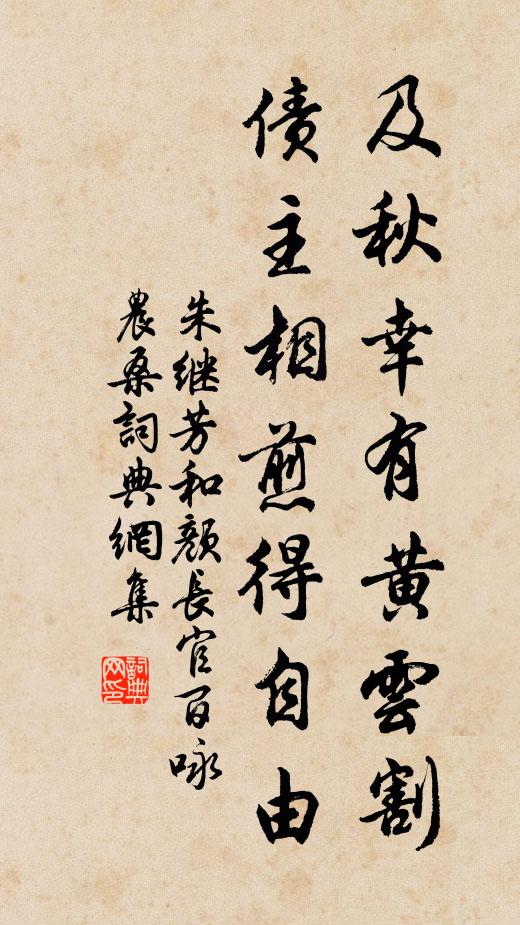 及秋幸有黄雲割
债主相煎得自由
朱继芳和颜長官百咏
農桑詞典網集
詞典网印